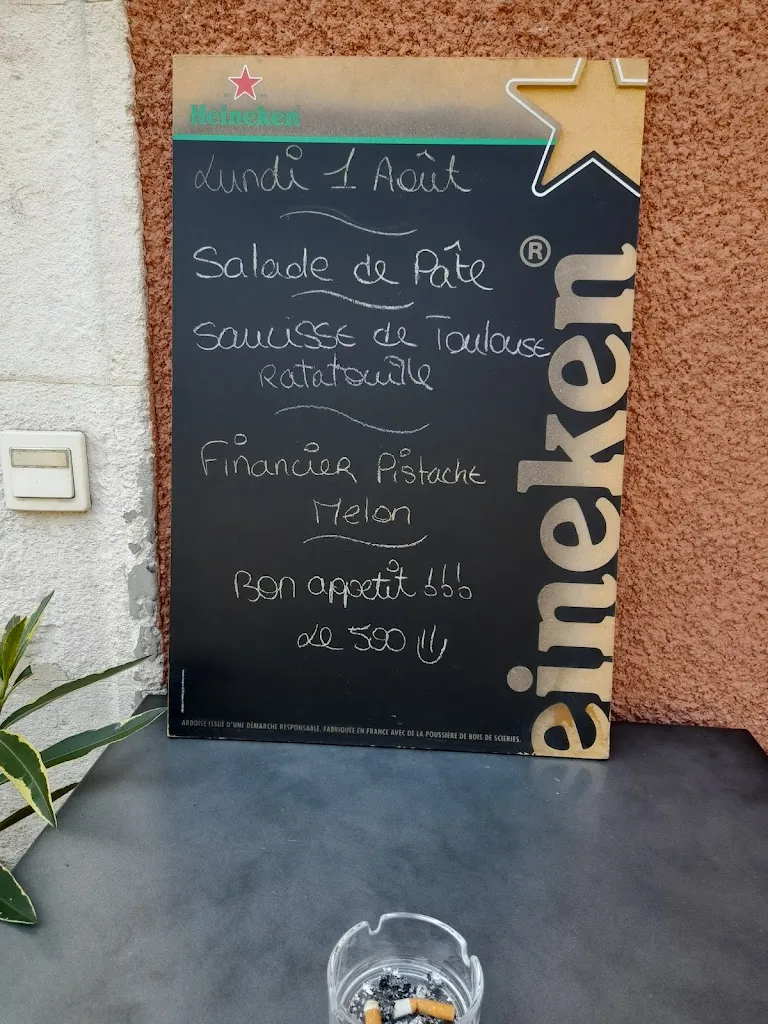 Heineken
Lundi 1 Août
Salade de Pâte
®
Saucisse de Toulouse
Ratatouille
Financier Pistache
Melon
Bon appetit !!!
Le 590
eineken
ARDOISE ISSUE D'UNE DÉMARCHE RESPONSABLE. FABRIQUÉE EN FRANCE AVEC DE LA POUSSIÈRE DE BOIS DE SCIERIES.